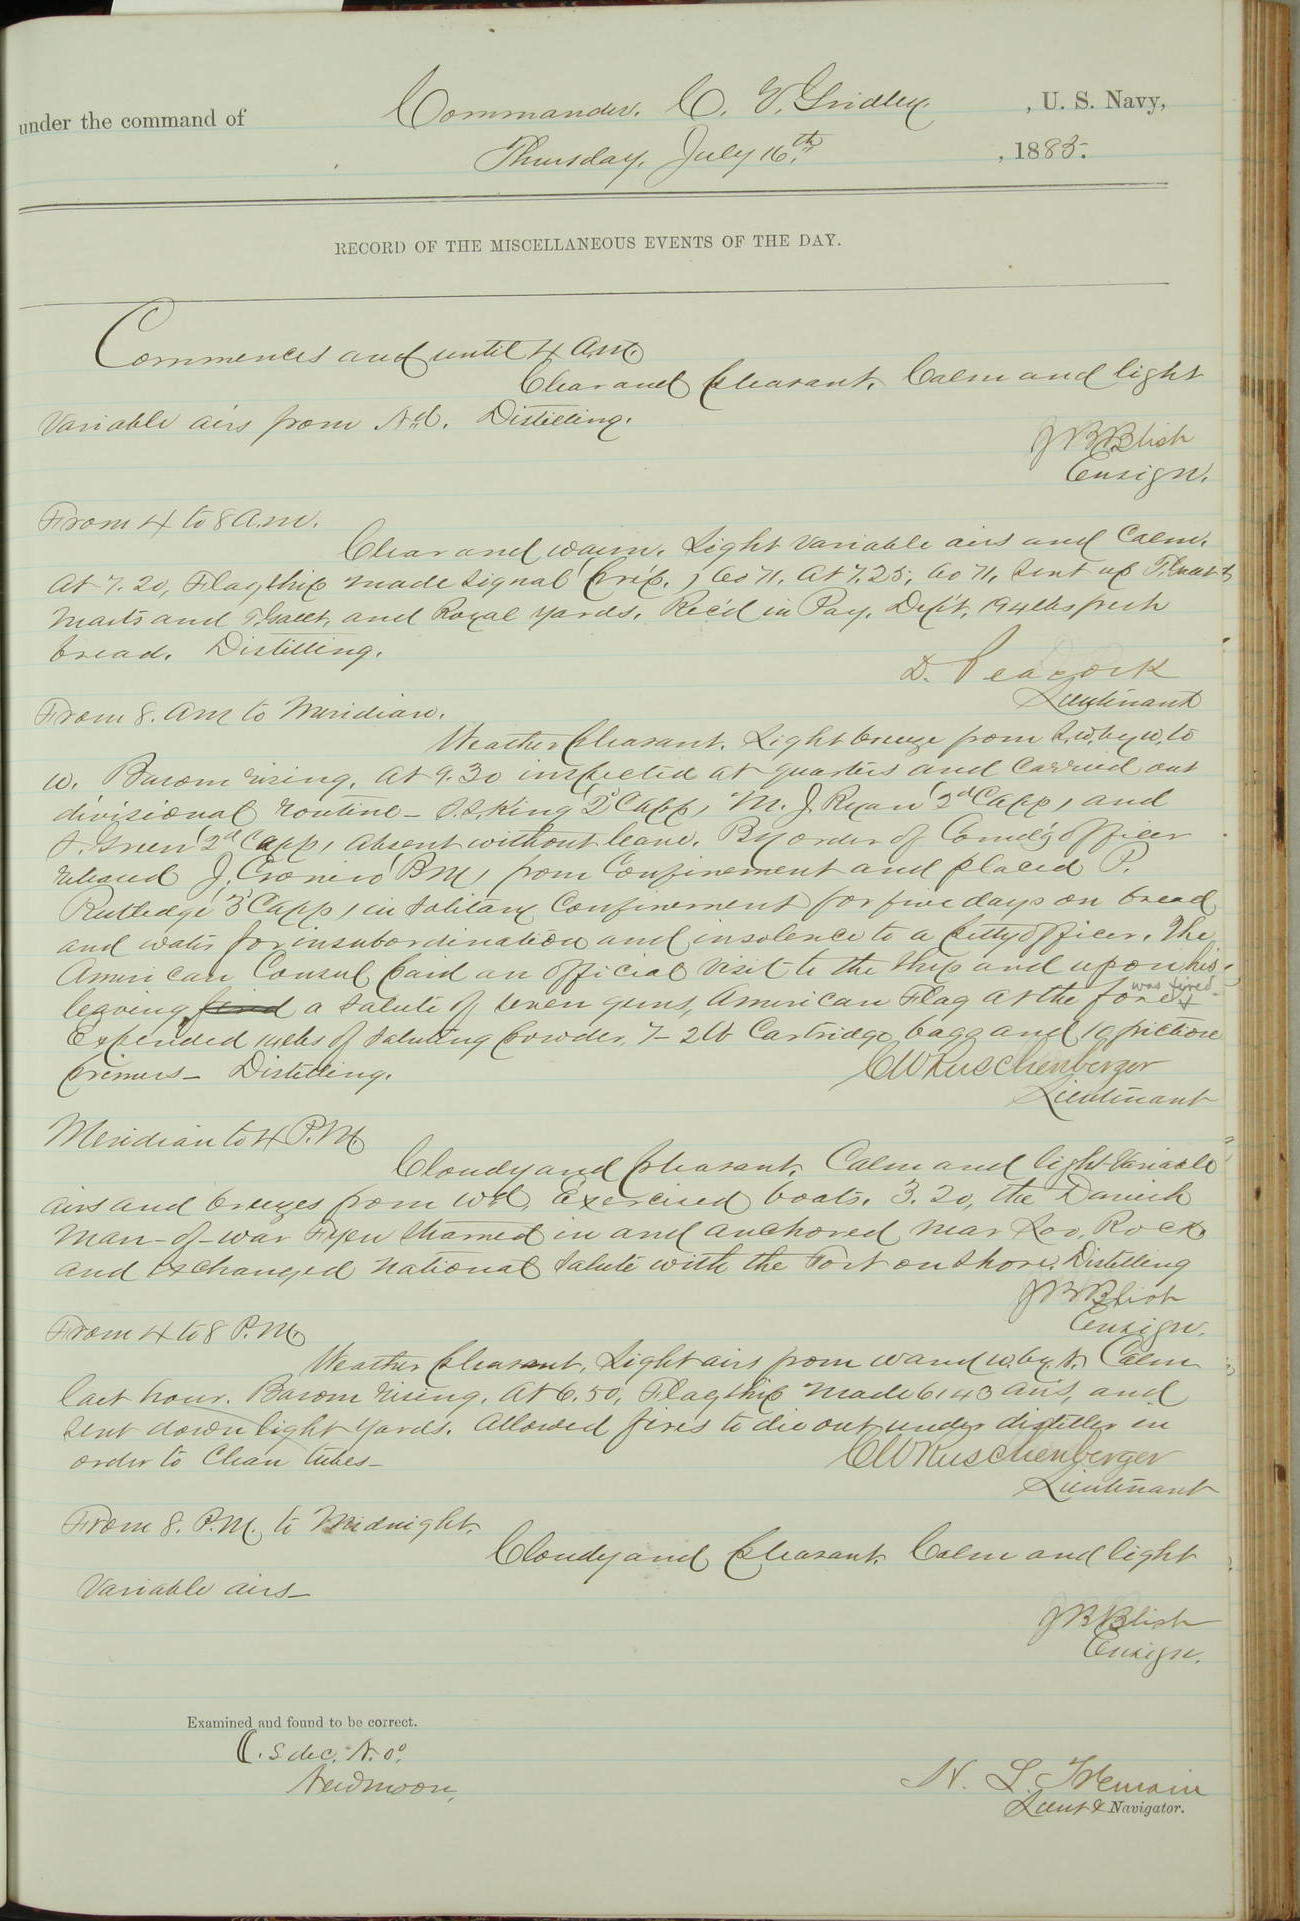 under the command of Commander. C. V. Gridley. , U. S. Navy,
Thursday, July 16th. , 1885.
RECORD OF THE MISCELLANEOUS EVENTS OF THE DAY.
Commences and until 4 A.M.
Clear and pleasant. Calm and light
variable airs from Nd. Distilling.
J B Blish
Ensign.
From 4 to 8 A.M.
Clear and warm. Light variable airs and Calm.
At 7.20, Flagship made signal 71. At 7.25, 71, Sent up
masts and and Royal yards. Rec'd in Pay. Dep't. 194 lbs fresh
bread. Distilling.
D. Peacock
Lieutenant
From 8. AM to Meridian.
Weather pleasant. Light breeze from S.W. by W. to
W. Barom rising. At 9.30 inspected at quarters and carried out
divisional routine_ King (2d C app) M. J. Ryan (2d C app) and
Green (2d C app) absent without leave. By order of Comd'g officer
released J. Cronin (BM) from confinement and placed P.
Rutledge (3d C app) in solitary confinement for five days on bread
and water for insubordination and insolence to a petty officer. The
American Consul paid an official visit to the ship and upon his
leaving fired a salute of seven guns, American Flag at the fore was fired
Expended lbs of saluting powder, 7-2 lb Cartridge bags and 10 friction
primers_ Distilling.
C W Ruschenberger
Lieutenant
Meridian to 4 P.M.
Cloudy and pleasant. Calm and light variable
airs and breezes from Wd. Exercised boats. 3.20, the Danish
man-of-war Fyen steamed in and anchored near Loo Rock
and exchanged national salute with the Fort on shore. Distilling
J B Blish
Ensign.
From 4 to 8 P.M.
Weather pleasant, Light airs from W and W. by N. Calm
last hour. Barom rising. At 6.50, Flagship made 6143 and
sent down light yards. Allowed fires to die out under distiller in
order to clean tubes_
C W Ruschenberger
Lieutenant
From 8. P.M. to Midnight.
Cloudy and pleasant. Calm and light
variable airs_
J B Blish
Ensign.
Examined and found to be correct.
dec. N. 0°.
New moon,
Lieut & Navigator.